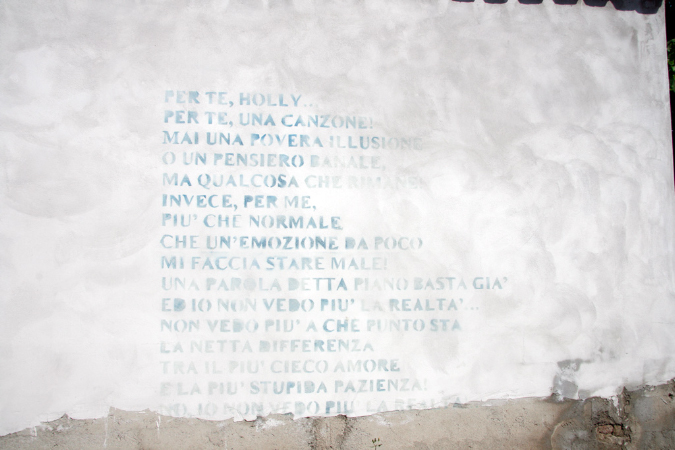 PER TE, HOLLY...
PER TE, UNA CANZONE!
MAI UNA POVERA ILLUSIONE
O UN PENSIERO BANALE,
MA QUALCOSA CHE RIMANE!
INVECE, PER ME,
PIU' CHE NORMALE
CHE UN'EMOZIONE DA POCO
MI FACCIA STARE MALE!
UNA PAROLA DETTA PIANO BASTA GIA'
ED IO NON VEDO PIU' LA REALTA'...
NON VEDO PIU' A CHE PUNTO STA
LA NETTA DIFFERENZA
TRA IL PIU' CIECO AMORE
E LA PIU' STUPIDA PAZIENZA!
NO, IO NON VEDO PIU' LA REALTA